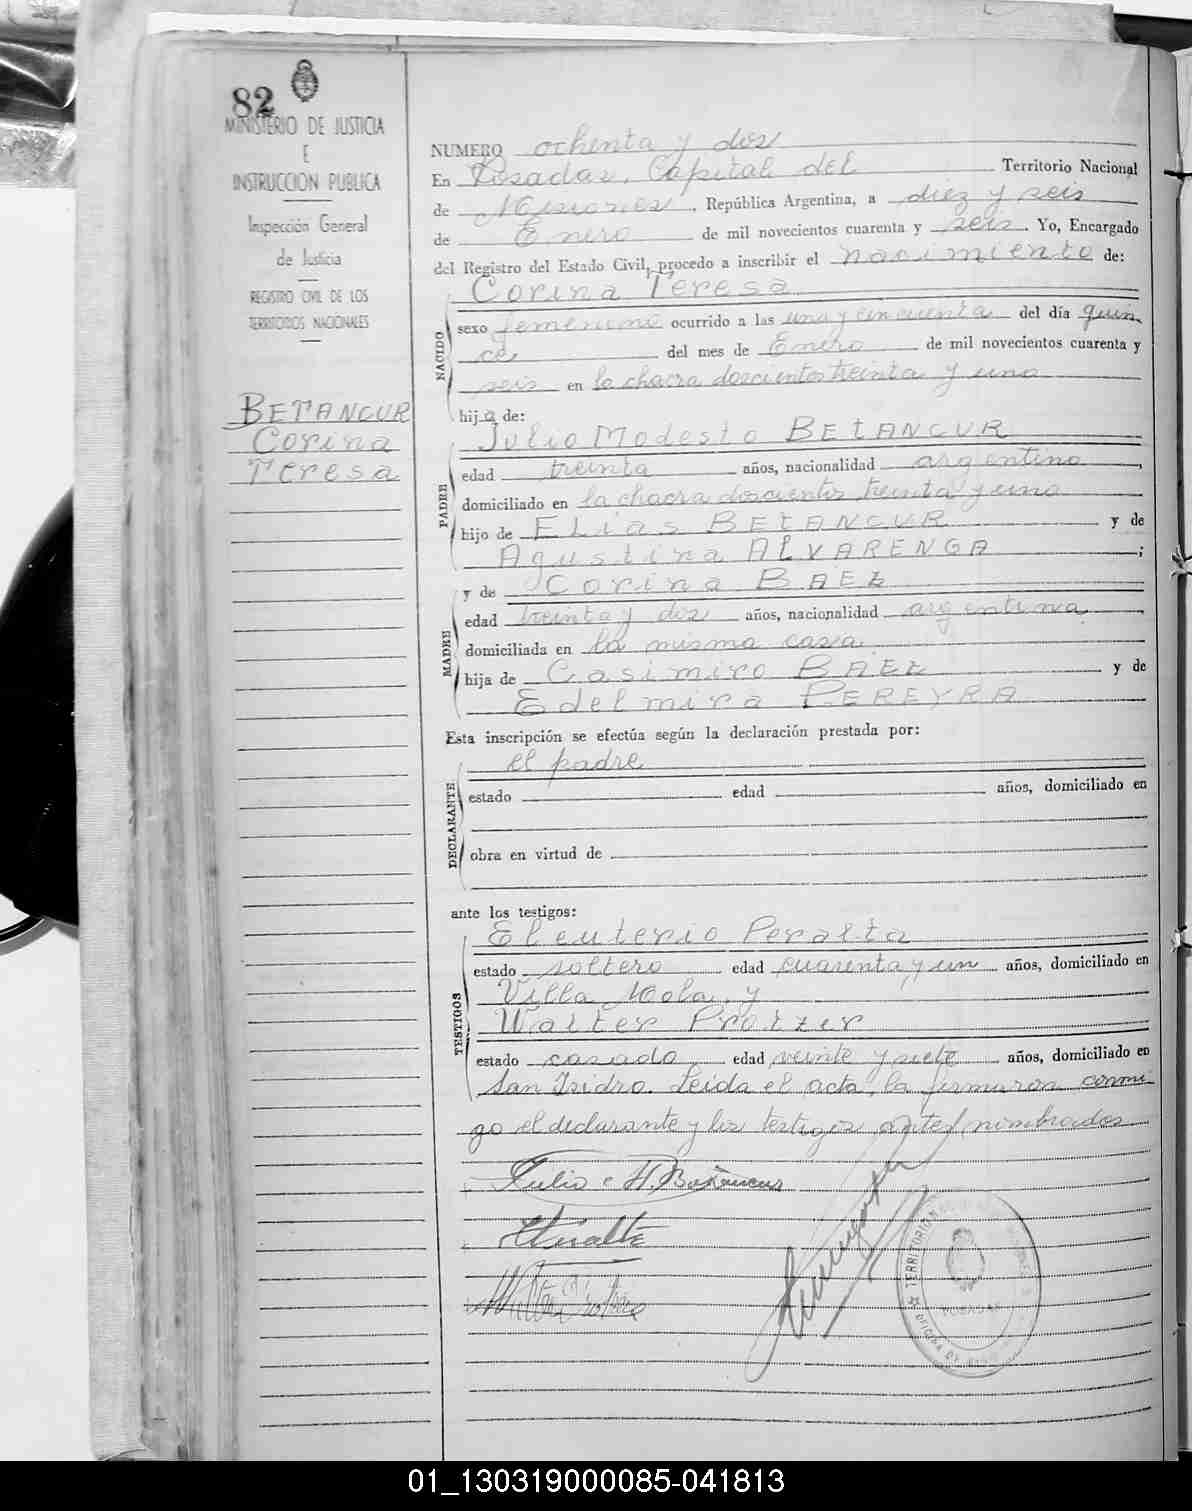 82
MINISTERIO DE JUSTICIA
E
INSTRUCCION PUBLICA
Inspección General
de Justicia
REGISTRO CIVIL DE LOS
TERRITORIOS NACIONALES
BETANCUR
Corina
Teresa
NUMERO ochenta y dos
En Posadas, Capital del Territorio Nacional
de Misiones, República Argentina, a diez y seis
de Enero de mil novecientos cuarenta y seis. Yo, Encargado
del Registro del Estado Civil, procedo a inscribir el nacimiento de:
NACIDO
Corina Teresa
sexo femenino ocurrido a las una y cincuenta del día quin
ce del mes de Enero de mil novecientos cuarenta y
seis en la chacra doscientos treinta y uno
hija de:
PADRE
Julio Modesto BETANCUR
edad treinta años, nacionalidad argentino,
domiciliado en la chacra doscientos treinta y uno
hijo de Elias BETANCUR y de
Agustina ALVARENGA;
MADRE
y de Corina BAEZ
edad treinta y dos años, nacionalidad argentina,
domiciliada en la misma casa
hija de Casimiro BAEZ y de
Edelmira PEREYRA
Esta inscripción se efectúa según la declaración prestada por:
DECLARANTE
el padre
estado edad años, domiciliado en
obra en virtud de
ante los testigos:
TESTIGOS
Eleuterio Peralta
estado soltero edad cuarenta y un años, domiciliado en
Villa Mola, y
Walter Protzer
estado casado edad veinte y siete años, domiciliado en
San Isidro. Leida el acta, la firmaron conmi
go el declarante y los testigos antes nombrados
Julio M. Betancur
EPeralta
TERRITORIO
POSADAS
OFICINA
01_130319000085-041813